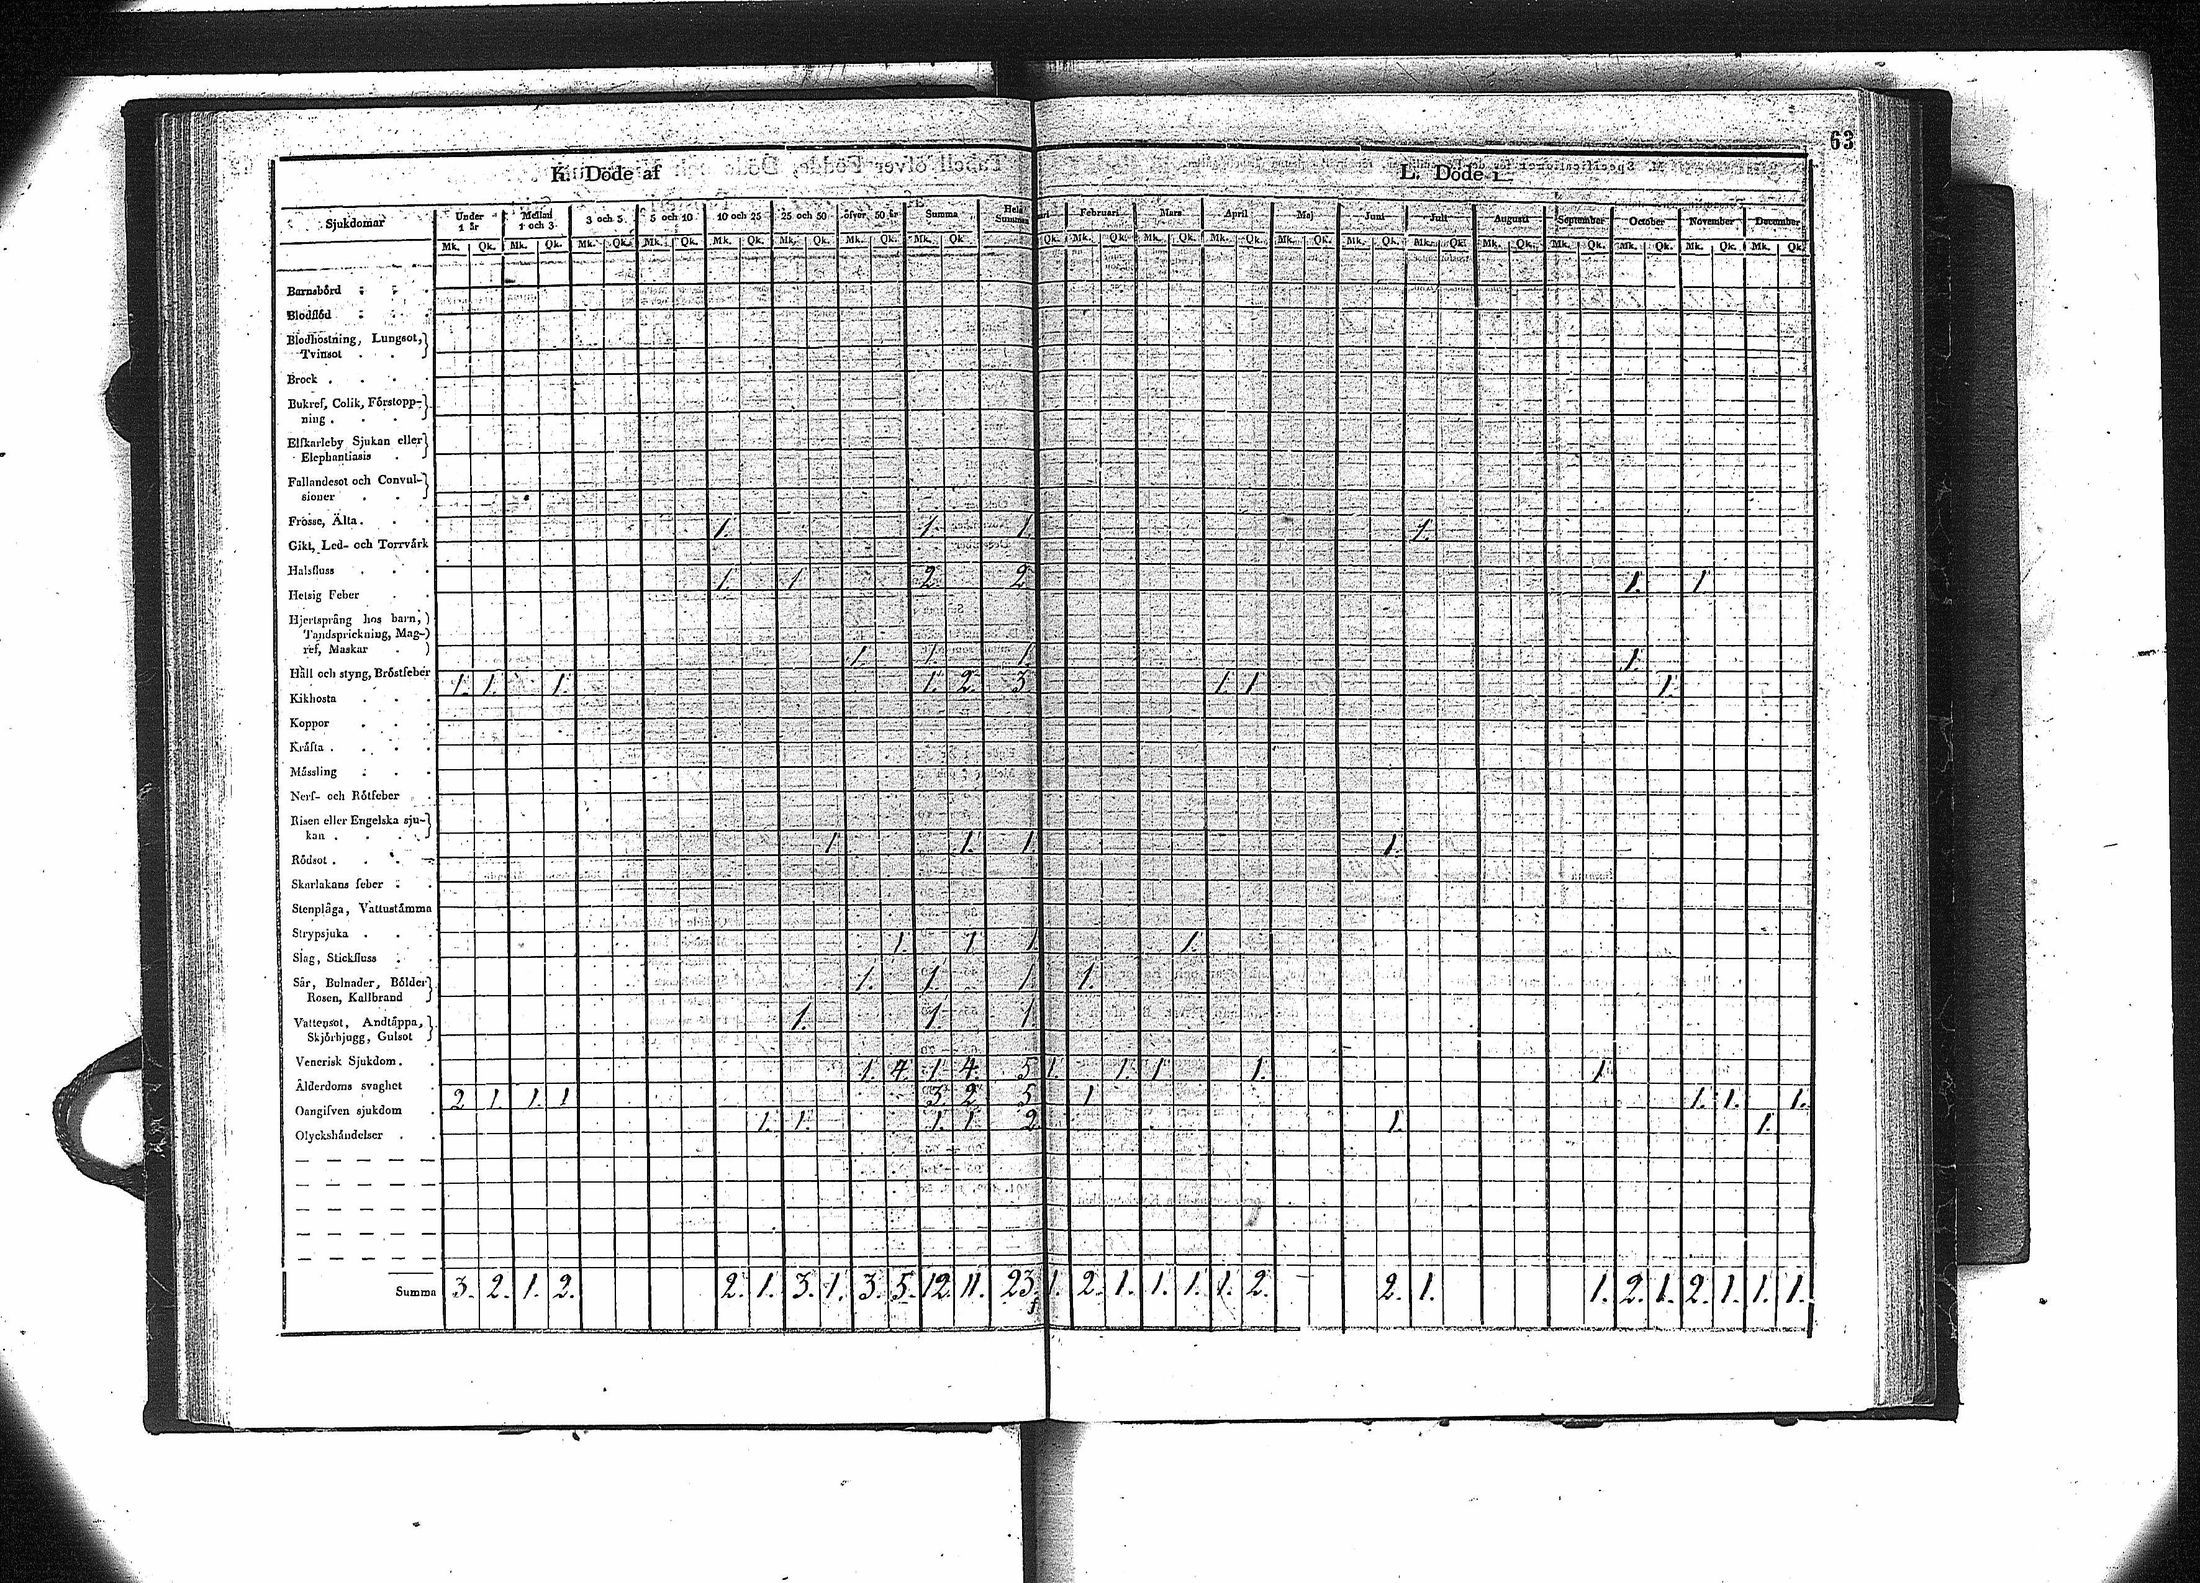 63
K. Döde af
L. Döde i
Sjukdomar Under 1 år Mellan 1 och 3. 3 och 5. 5 och 10 10 och 25 25 och 50 öfver 50 år Summa Hela Summan Februari Mars April Maj Juni Juli Augusti September October November December
Mk. Qk. Mk. Qk. Mk. Qk. Mk. Qk. Mk. Qk. Mk. Qk. Mk. Qk. Mk. Qk. Qk. Mk. Qk. Mk. Qk. Mk. Qk. Mk. Qk. Mk. Qk. Mk. Qk. Mk. Qk. Mk. Qk. Mk. Qk. Mk. Qk. Mk. Qk.
Barnsbörd
Blodflöd
Blodhostning, Lungsot,
Tvinsot
Brock
Bukref, Colik, Förstopp-
ning
Elfkarleby Sjukan eller
Elephantiasis
Fallandesot och Convul-
sioner
Frosse, Älta 1. 1. 1. 1.
Gikt, Led- och Torrvärk
Halsfluss 1. 1. 2. 2 1. 1.
Hetsig Feber
Hjertsprång hos barn,
Tandsprickning, Mag-
ref, Maskar 1. 1. 1. 1.
Håll och styng, Bröstfeber 1. 1. 1. 1. 2. 3 1. 1. 1.
Kikhosta
Koppor
Kräfta
Mässling
Nerf- och Rötfeber
Risen eller Engelska sju-
kan 1. 1. 1. 1.
Rödsot
Skarlakans feber
Stenplåga, Vattustämma
Strypsjuka 1. 1. 1. 1.
Slag, Stickfluss
Sår, Bulnader, Bölder 1. 1. 1. 1.
Rosen, Kallbrand
Vattensot, Andtäppa, 1. 1. 1.
Skjörbjugg, Gulsot
Venerisk Sjukdom 1. 4. 1. 4. 5 1. 1. 1. 1. 1.
Ålderdoms svaghet 2 1. 1. 1 3. 2. 5 1. 1. 1. 1.
Oangifven sjukdom 1. 1. 1. 1. 2 1. 1.
Olyckshändelser
Summa 3. 2. 1. 2. 2. 1. 3. 1. 3. 5. 12. 11. 23. 1. 2. 1. 1. 1. 1. 2. 2. 1. 1. 2. 1. 2. 1. 1. 1.